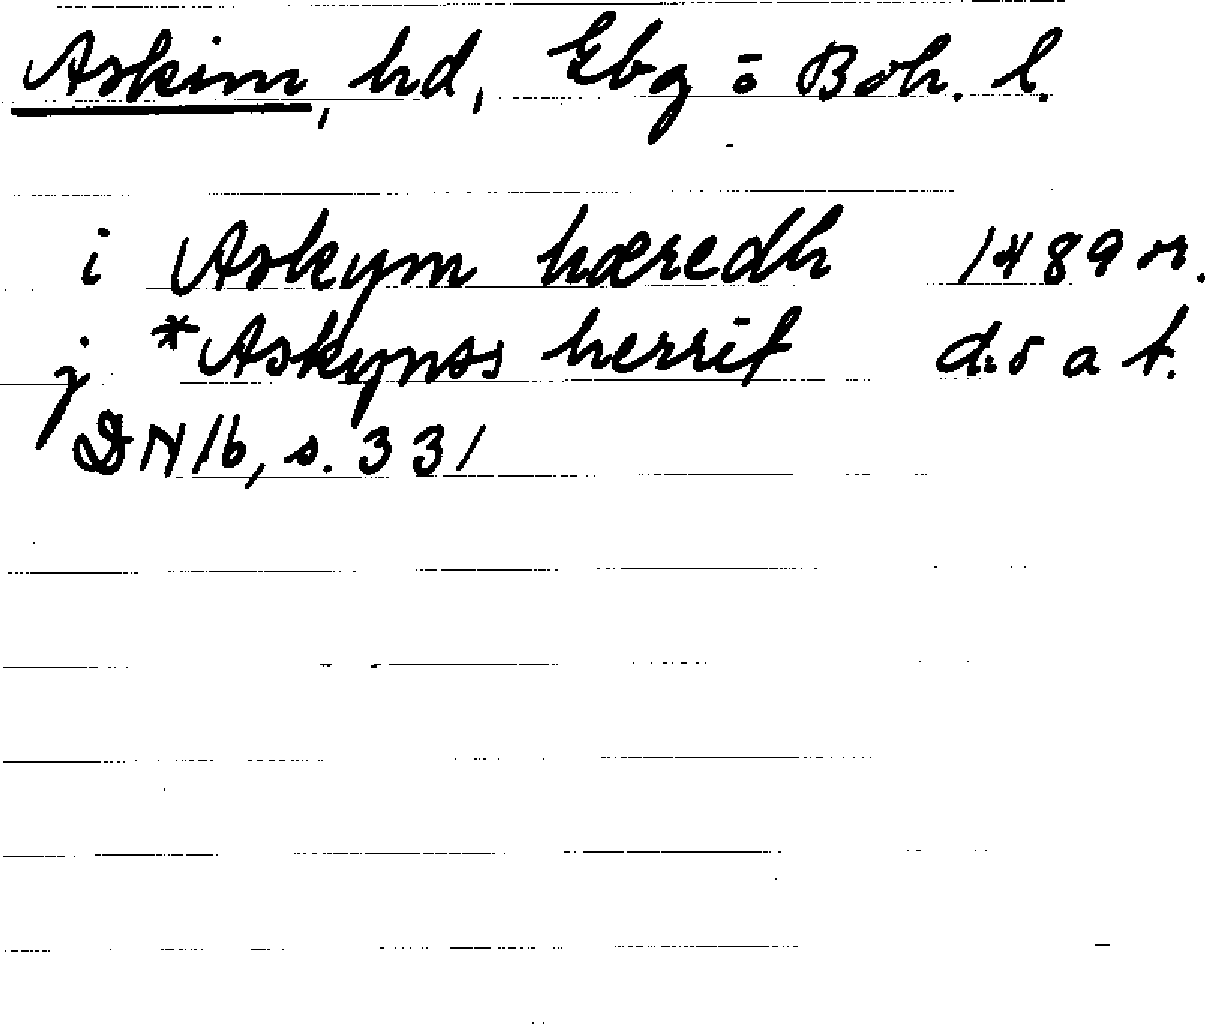 Askim, hd, Gbg o Boh. l.
i Askym hæredh 1489 or.
j *Askynss herrit d:o a f.
DN 16, s. 331